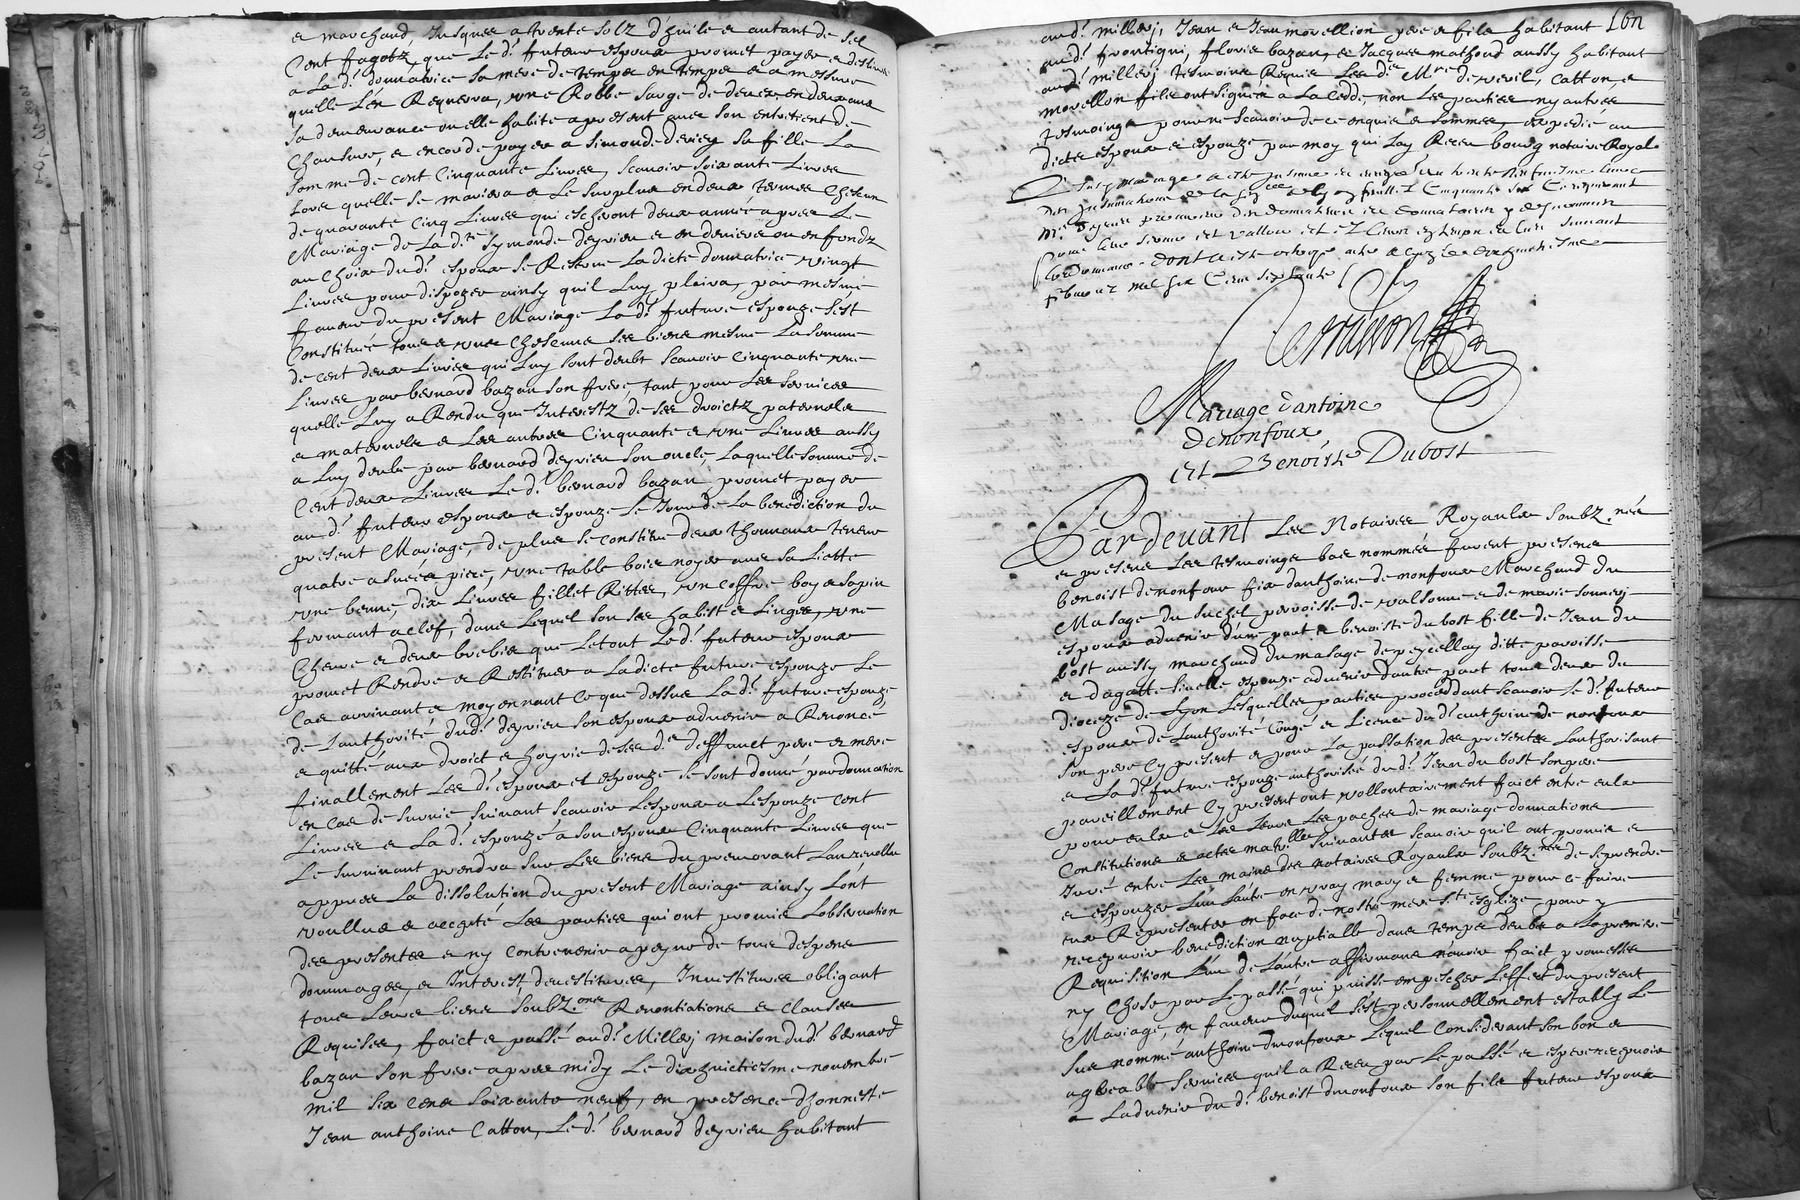 et marchand jusques a trente solz d'huile et autant de sel
Cent fagotz, que led.t futeur espoux promet payer et
a Lad.t donnatrice sa mere de temps en temps et a mesure
quelle L'en Requerra, une Robbe sarge de deux en deux ans
sa demeurance ou elle habite apresent avec son entretient de
Chausure, et encor de payer a Simonde deyrieu sa fille La
somme de cent Cinquante Livres, scavoir soixante Livres
Lors quelle se mariera et Le surplus en deux termes Chescun
de quarante Cinq Livres qui escherront deux année apres Le
Mariage de La d.te Symonde deyrieu et en deniers ou en fondz
au choix dud.t espoux se Reserve Ladicte donnatrice vingt
Livres pour dispozer ainsy quil Luy plaira, par mesme
faveur du present Mariage Lad.t future espouze s'est
Constitué tous et uns Chescuns ses biens mesme La somme
de cent deux Livres qui Luy sont deubt scavoir Cinquante une
Livres par bernard bazan son frere, tant pour Les services
quelle Luy a Rendu que Interestz de ses droictz paternels
et maternels et Les autres Cinquante et une Livres aussy
a Luy deubs par bernard deyrieu son oncle, Laquelle somme de
Cent deux Livres Led.t bernard bazan promet payer
aud.t futeur espoux et espouze Le Jour de La benediction du
present Mariage, de plus se constitue deux thonnaux teneur
quatre asnées piece, une table bois noyer avec sa Liette
une benne, dix Livres fillet Rittes, un coffre boys sapin
fermant a clef, dans Lequel son ses habist et Linges, une
Chevre et deux brebis que Letout Led.t futeur espoux
promet Rendre et Restituer a Ladicte future espouze Le
Cas arrivant et moyennant Ce que dessus Lad.t future espouze
de Lauthorité dud.t deyrieu son espoux advenir a Renoncé
et quitte aux droict et hoyrie de ses d.ts deffunct pere et mere
finallement Les d.t espoux et espouze se sont donné par donnation
en Cas de survie suivant scavoir Lespoux a Lespouze Cent
Livres et La d.t espouze a son espoux Cinquante Livres que
Le survivant prendra sur Les biens du premorant Lan revollu
appres La dissolution du present Mariage ainsy Lont
voullus et accepté Les parties qui ont promis Lobservation
des presentes et ny Contrevenir a peyne de tous despens
dommages, et Interest, devestitures, Investitures obligant
tous Leurs biens soubz.ons Renontiations et Clauses
Requises, faict et passé aud.t Millery maison dud.t bernard
bazan son frere apres midy Le dixhuictiesme novembre
mil six Cens soixante neuf, en presence d'honneste
Jean anthoine Catton, Led.t bernard deyrieu habitant
aud.t millery, Jean et Jean morellion pere et fils habitant 160
aud.t frontigni, floris bazan, et Jacques mathoud aussy habitant
aud.t millery tesmoins Requis Les d.ts M.re de vereil, Catton, et
morellon fils ont signés a La Cedde, non Les parties ny autres
tesmoings pour ne scavoir de ce enquis et sommes, expedié au
dictz espoux et espouze par moy qui Lay Receu bourg notaire Royal
Mariage d'antoine
demonfoux
et Benoiste Dubost
Pardevant Les Notaires Royaulx soubz.nés
et presens Les tesmoings bas nommés furent presens
benoist demonfoux fix danthoine de monfoux Marchand du
Masage du suchel perroisse de valsonne et de marie sonnery
espoux advenir d'une part et benoiste dubost fille de Jean du
bost aussy marchand du masage de peycellay ditte parroisse
et d'agatte sivelle espouze advenir dautre part tous deux du
dioceze de Lyon Lesquelles parties proceddant scavoir Led.t futeur
espoux de Lauthorité Congé et Licence dud.t anthoine de monfoux
son pere Cy present et pour La passation des presentes Lauthorisant
et La d.t future espouze authorisée dud.t Jean du bost son pere
pareillement Cy present ont vollontairement faict entre eulx
pour eulx et Les Leurs Les paches de mariage donnations
Constitutions et actes mat.lles suivantes, scavoir quil ont promis et
Juré entre Les mains des notaires Royaulx soubz.nés de se prendre
et espouzer Lun Lautre en vray mary et femme pour ce faire
eux Representer en face de nostre mere s.te esglize pour y
recepvoir benediction nuptialle dans temps deubs a La premiere
Requisition Lun de Lautre affirmans navoir faict promesses
ny Chose par Le passé qui puisse empescher Leffect du present
Mariage, en faveur duquel s'est personnellement estably Le
sus nommé anthoine dmonfoux Lequel Considerant son bon et
agreable services quil a Receu par Le passé et espere recepvoir
a Ladvenir dud.t benoist dmonfoux son fils futeur espoux